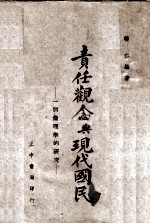 責任觀念與現代國民
——一個倫理學的研究——
正中書局印行